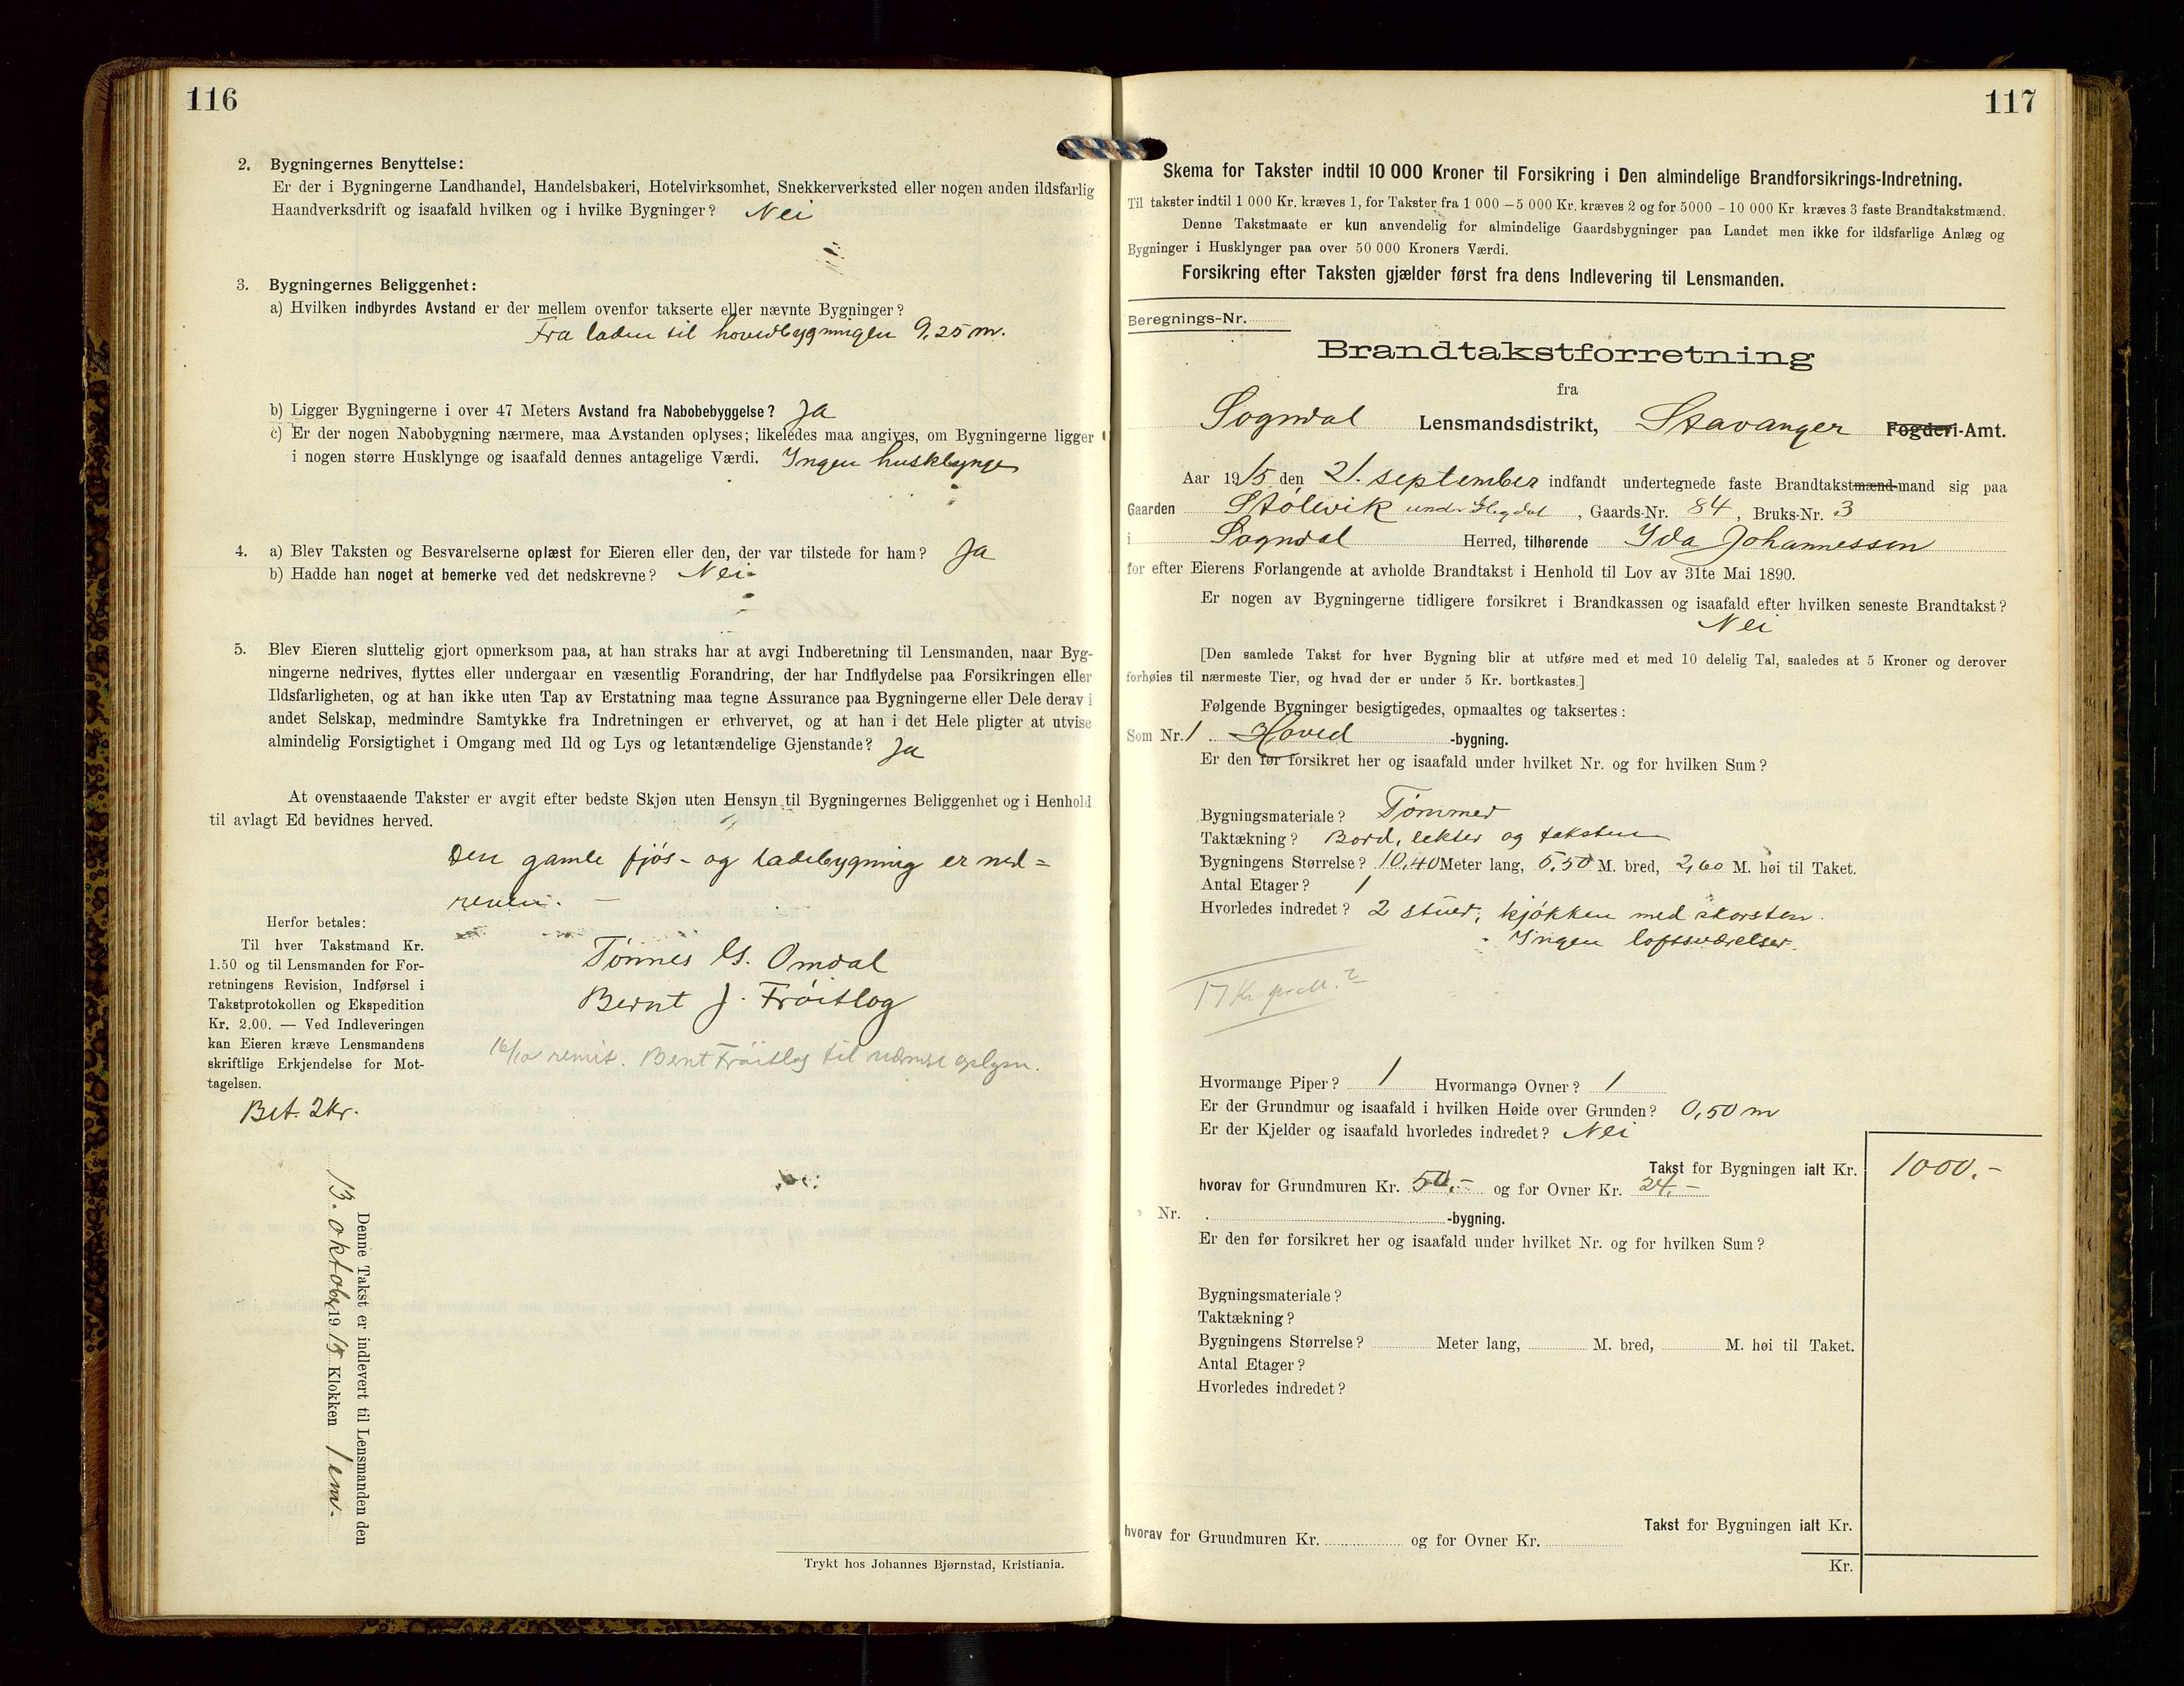 116
2. Bygningernes Benyttelse:
Er der i Bygningerne Landhandel, Handelsbakeri, Hotelvirksomhet, Snekkerverksted eller nogen anden ildsfarlig
Haandverksdrift og isaafald hvilken og i hvilke Bygninger? Nei
3. Bygningernes Beliggenhet:
a) Hvilken indbyrdes Avstand er der mellem ovenfor takserte eller nævnte Bygninger?
Fra laden til hovedbygningen 9,25 m.
b) Ligger Bygningerne i over 47 Meters Avstand fra Nabobebyggelse? Ja
c) Er der nogen Nabobygning nærmere, maa Avstanden oplyses; likeledes maa angives, om Bygningerne ligger
i nogen større Husklynge og isaafald dennes antagelige Værdi. Ingen husklynge
4. a) Blev Taksten og Besvarelserne oplæst for Eieren eller den, der var tilstede for ham? Ja
b) Hadde han noget at bemerke ved det nedskrevne? Nei
5. Blev Eieren sluttelig gjort opmerksom paa, at han straks har at avgi Indberetning til Lensmanden, naar Byg-
ningerne nedrives, flyttes eller undergaar en væsentlig Forandring, der har Indflydelse paa Forsikringen eller
Ildsfarligheten, og at han ikke uten Tap av Erstatning maa tegne Assurance paa Bygningerne eller Dele derav i
andet Selskap, medmindre Samtykke fra Indretningen er erhvervet, og at han i det Hele pligter at utvise
almindelig Forsigtighet i Omgang med Ild og Lys og letantændelige Gjenstande? Ja
At ovenstaaende Takster er avgit efter bedste Skjøn uten Hensyn til Bygningernes Beliggenhet og i Henhold
til avlagt Ed bevidnes herved.
Den gamle fjøs- og ladebygning er ned=
reven. —
Tønnes G. Omdal
Bernt J. Frøitlog
16/10 remit. Bernt Frøitlog til nærmere oplysn.
Herfor betales:
Til hver Takstmand Kr.
1.50 og til Lensmanden for For-
retningens Revision, Indførsel i
Takstprotokollen og Ekspedition
Kr. 2.00. — Ved Indleveringen
kan Eieren kræve Lensmandens
skriftlige Erkjendelse for Mot-
tagelsen.
Bet. 2 kr.
Denne Takst er indlevert til Lensmanden den
13. oktober 1915 Klokken 1 em.
Trykt hos Johannes Bjørnstad, Kristiania.
117
Skema for Takster indtil 10 000 Kroner til Forsikring i Den almindelige Brandforsikrings-Indretning.
Til takster indtil 1 000 Kr. kræves 1, for Takster fra 1 000 — 5 000 Kr. kræves 2 og for 5000 - 10 000 Kr. kræves 3 faste Brandtakstmænd.
Denne Takstmaate er kun anvendelig for almindelige Gaardsbygninger paa Landet men ikke for ildsfarlige Anlæg og
Bygninger i Husklynger paa over 50 000 Kroners Værdi.
Forsikring efter Taksten gjælder først fra dens Indlevering til Lensmanden.
Beregnings-Nr.
Brandtakstforretning
fra
Sogndal Lensmandsdistrikt, Stavanger Fogderi-Amt.
Aar 1915 den 21. september indfandt undertegnede faste Brandtakstmænd-mand sig paa
Gaarden Stølevik under , Gaards-Nr. 84, Bruks-Nr. 3
i Sogndal Herred, tilhørende Ida Johannessen
for efter Eierens Forlangende at avholde Brandtakst i Henhold til Lov av 31te Mai 1890.
Er nogen av Bygningerne tidligere forsikret i Brandkassen og isaafald efter hvilken seneste Brandtakst?
Nei
[Den samlede Takst for hver Bygning blir at utføre med et med 10 delelig Tal, saaledes at 5 Kroner og derover
forhøies til nærmeste Tier, og hvad der er under 5 Kr. bortkastes.]
Følgende Bygninger besigtigedes, opmaaltes og taksertes:
Som Nr. 1. Hoved -bygning.
Er den før forsikret her og isaafald under hvilket Nr. og for hvilken Sum?
Bygningsmateriale? Tømmer
Taktækning? Bord, lekter og taksten
Bygningens Størrelse? 10,40 Meter lang, 5,50 M. bred, 2,60 M. høi til Taket.
Antal Etager? 1
Hvorledes indredet? 2 stuer, kjøkken med skorsten.
Ingen loftsværelser.
17 Kr
Hvormange Piper? 1 Hvormange Ovner? 1
Er der Grundmur og isaafald i hvilken Høide over Grunden? 0,50 m
Er der Kjelder og isaafald hvorledes indredet? Nei
Takst for Bygningen ialt Kr. 1000.-
hvorav for Grundmuren Kr. 50.- og for Ovner Kr. 24.-
Nr. -bygning.
Er den før forsikret her og isaafald under hvilket Nr. og for hvilken Sum?
Bygningsmateriale?
Taktækning?
Bygningens Størrelse? Meter lang, M. bred, M. høi til Taket.
Antal Etager?
Hvorledes indredet?
Takst for Bygningen ialt Kr.
hvorav for Grundmuren Kr. og for Ovner Kr.
Kr.